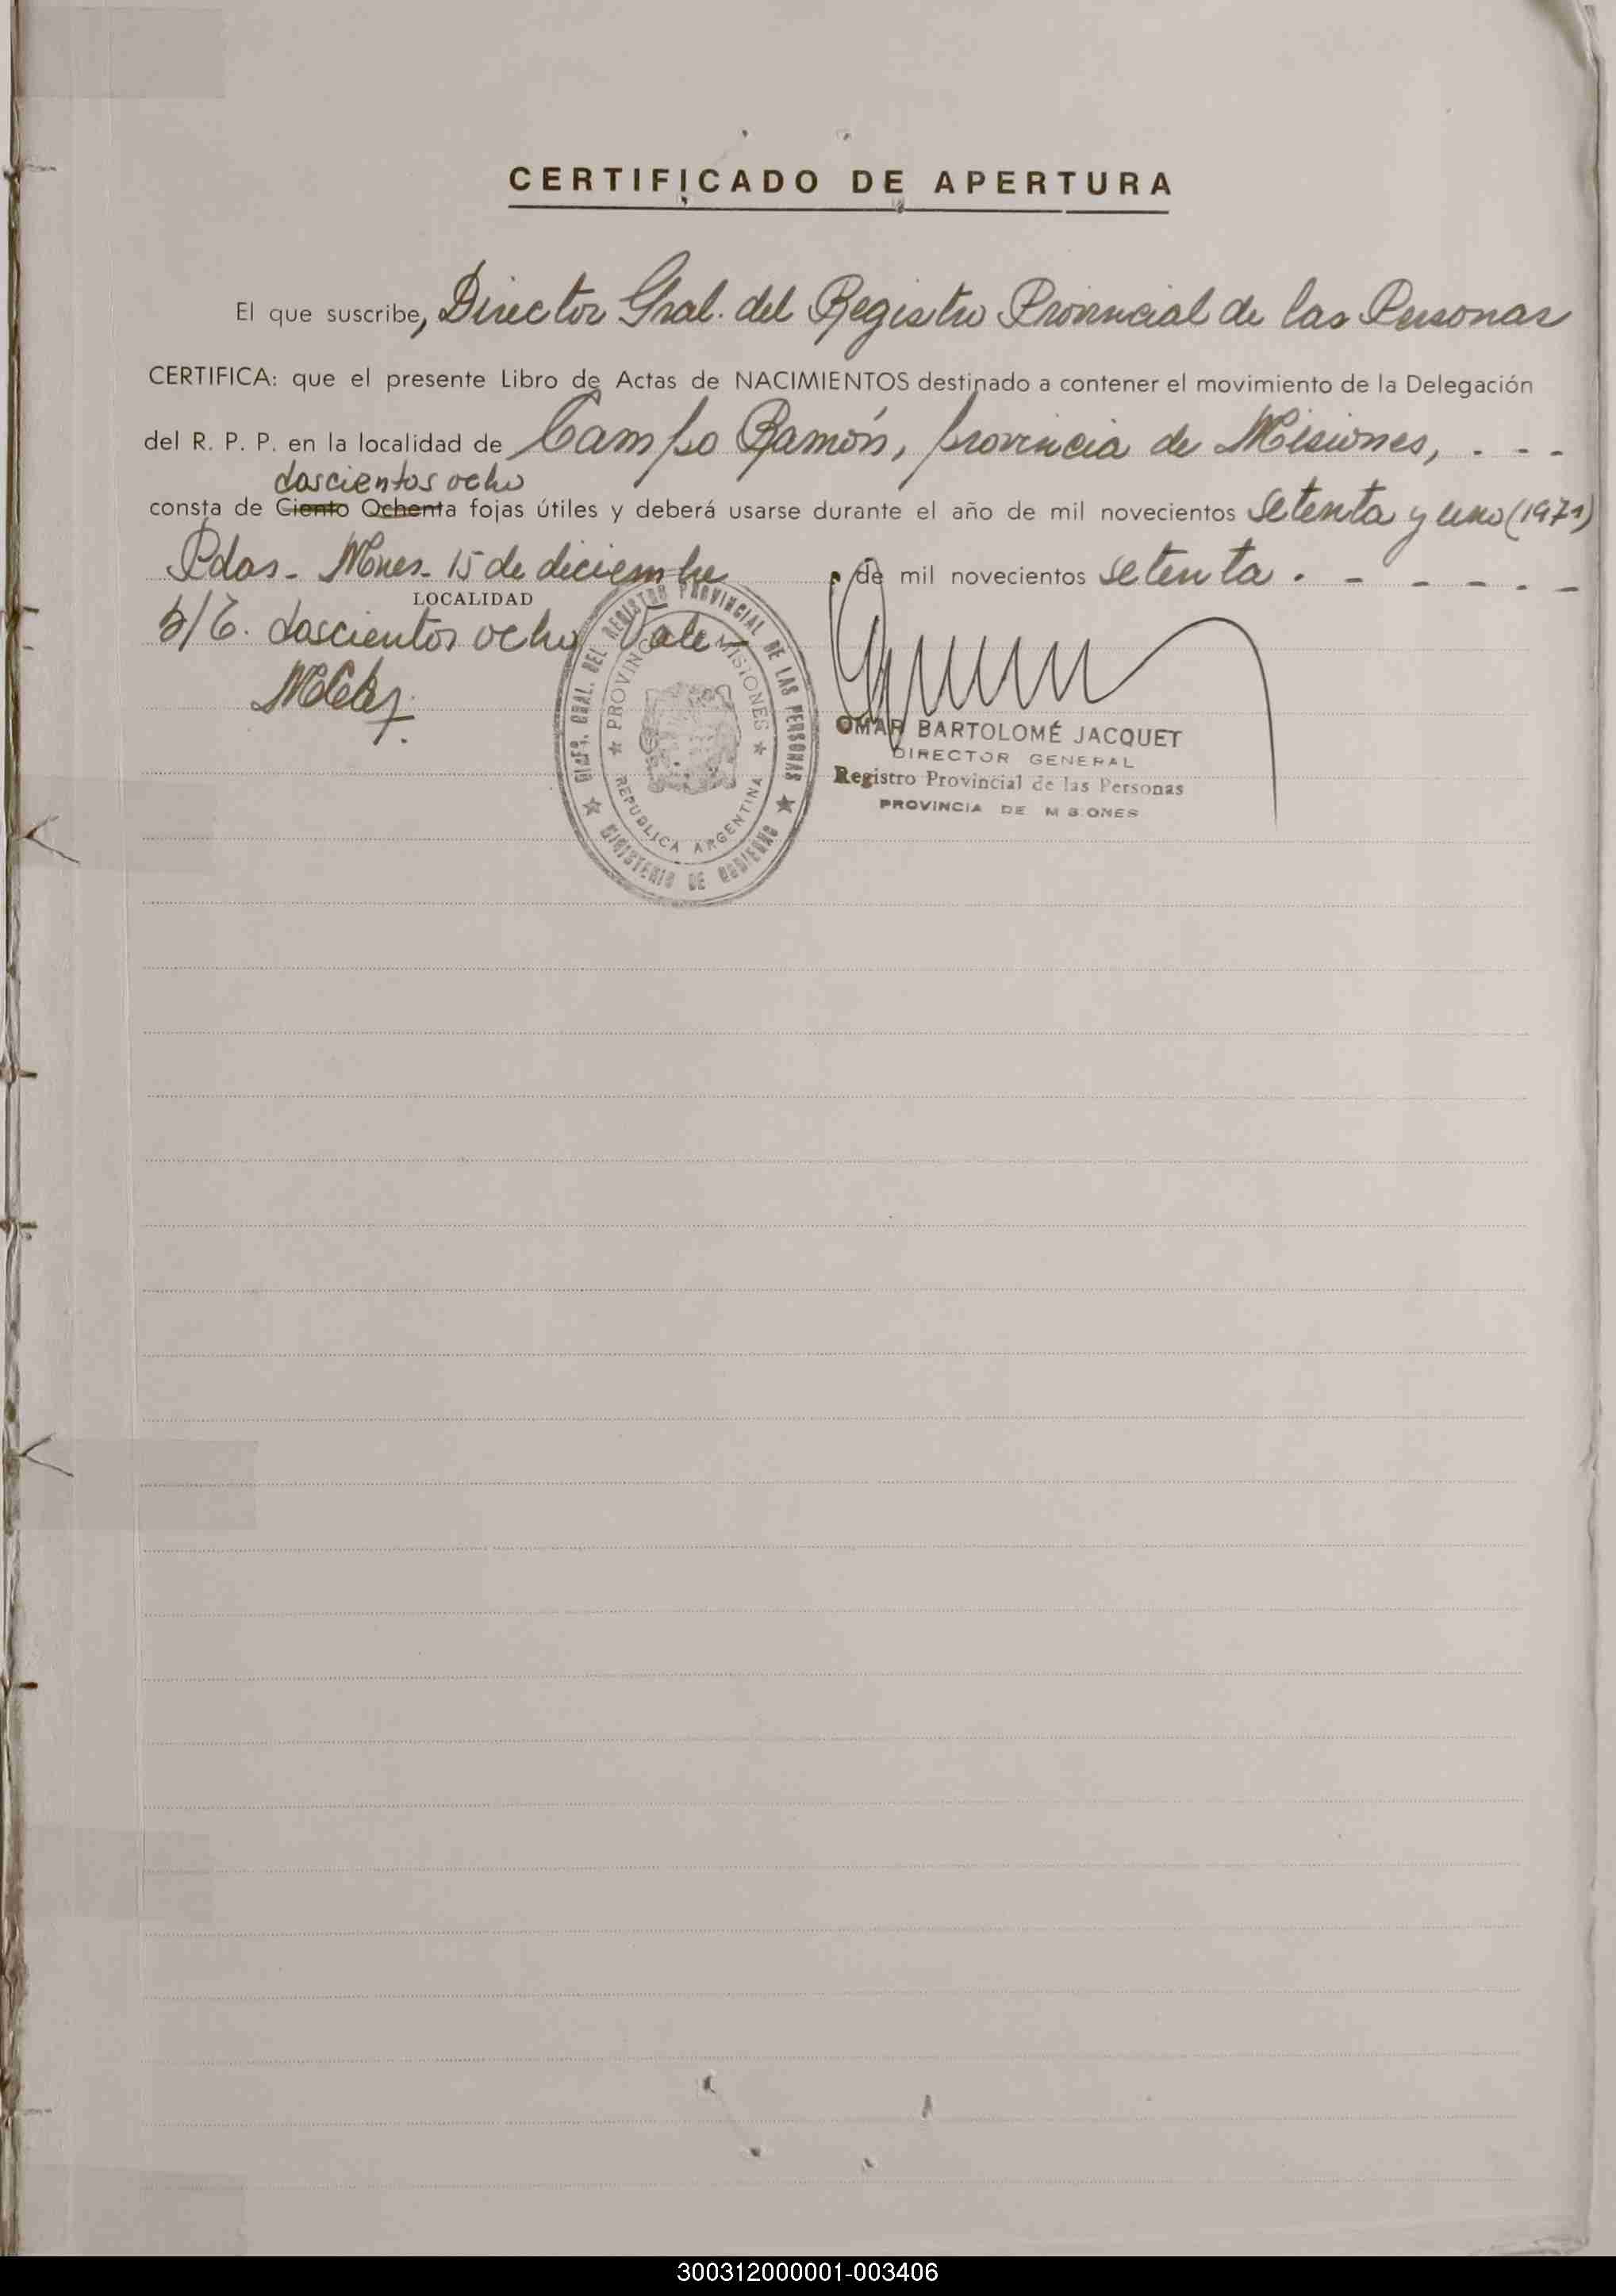 CERTIFICADO DE APERTURA
El que suscribe, Director Gral. del Registro Provincial de las Personas
CERTIFICA: que el presente Libro de Actas de NACIMIENTOS destinado a contener el movimiento de la Delegación
del R. P. P. en la localidad de Campo Ramón, provincia de Misiones, . - -
doscientos ocho
consta de Ciento Ochenta fojas útiles y deberá usarse durante el año de mil novecientos setenta y uno (1971)
Pdas. Mnes. 15 de diciembre de mil novecientos setenta . - - - - - -
LOCALIDAD
s/r. doscientos ocho Vale -
DIREC. GRAL. DEL REGISTRO PROVINCIAL DE LAS PERSONAS
PROVINCIA MISIONES
REPUBLICA ARGENTINA
MINISTERIO DE GOBIERNO
OMAR BARTOLOMÉ JACQUET
DIRECTOR GENERAL
Registro Provincial de las Personas
PROVINCIA DE MISIONES
300312000001-003406